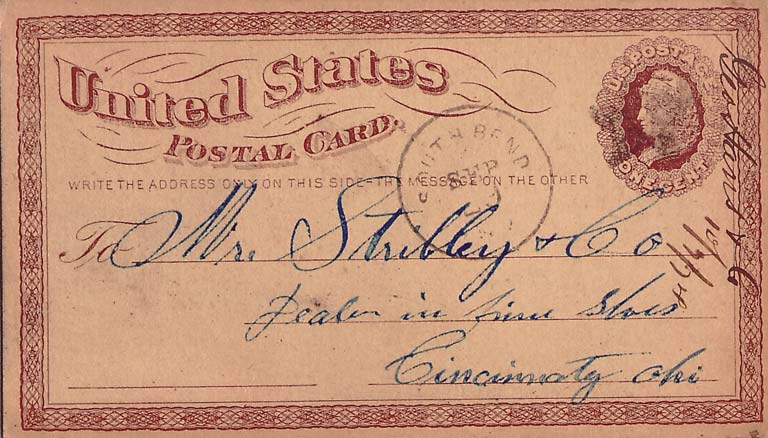 United States
POSTAL CARD.
U.S. POSTAGE
ONE CENT
SOUTH BEND
SEP
WRITE THE ADDRESS ONLY ON THIS SIDE-THE MESSAGE ON THE OTHER
To Mr. Stribley & Co
Dealer in fine shoes
Cincinnaty ohi
& Co